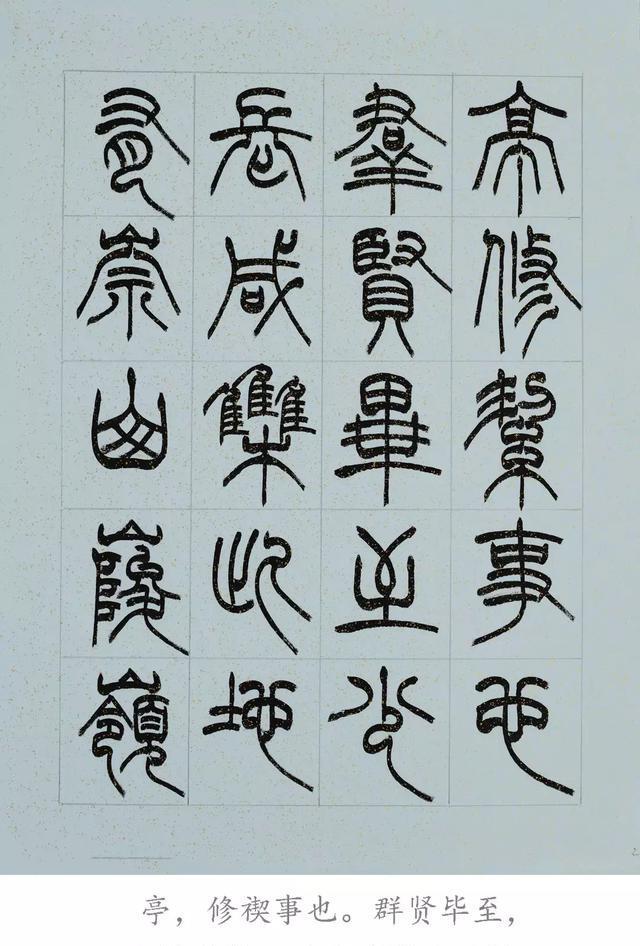 亭修絜事也
羣賢畢至少
長咸雧此地
有崇山峻嶺
亭，修禊事也。群贤毕至，